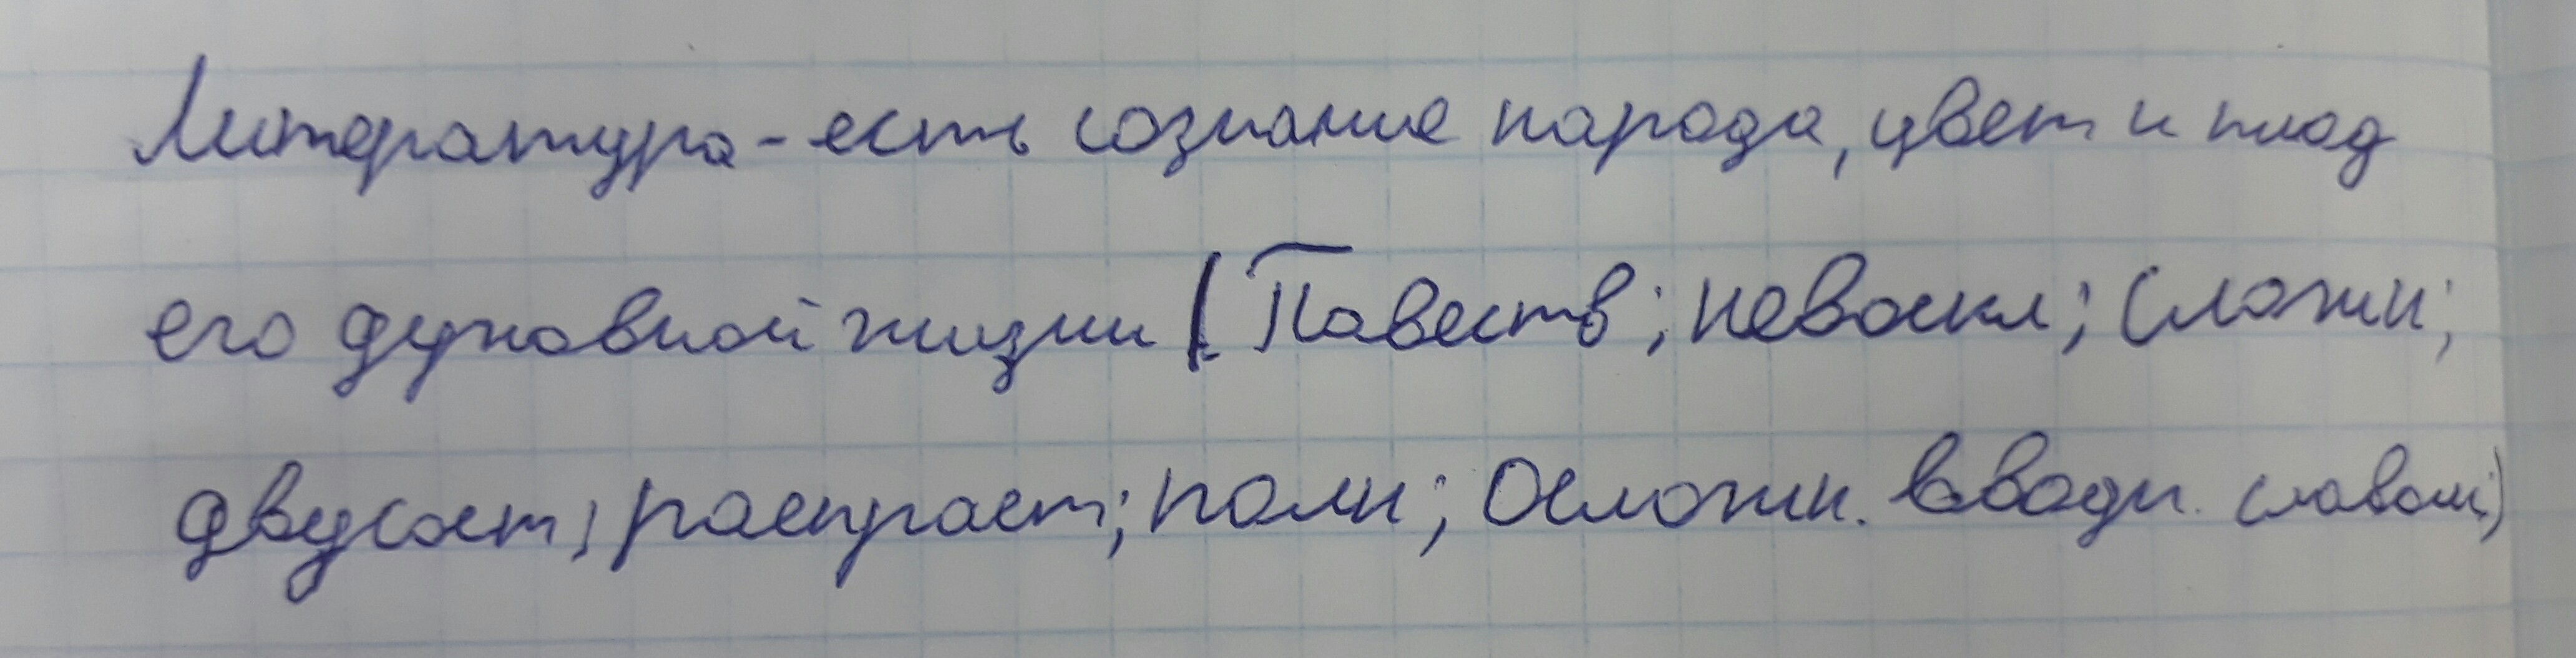 Литература - есть сознание народа, цвет и плод
его духовной жизни (Повеств; невоскл; Сложн;
двусост; распраст; полн; Осложн. вводн. словом)